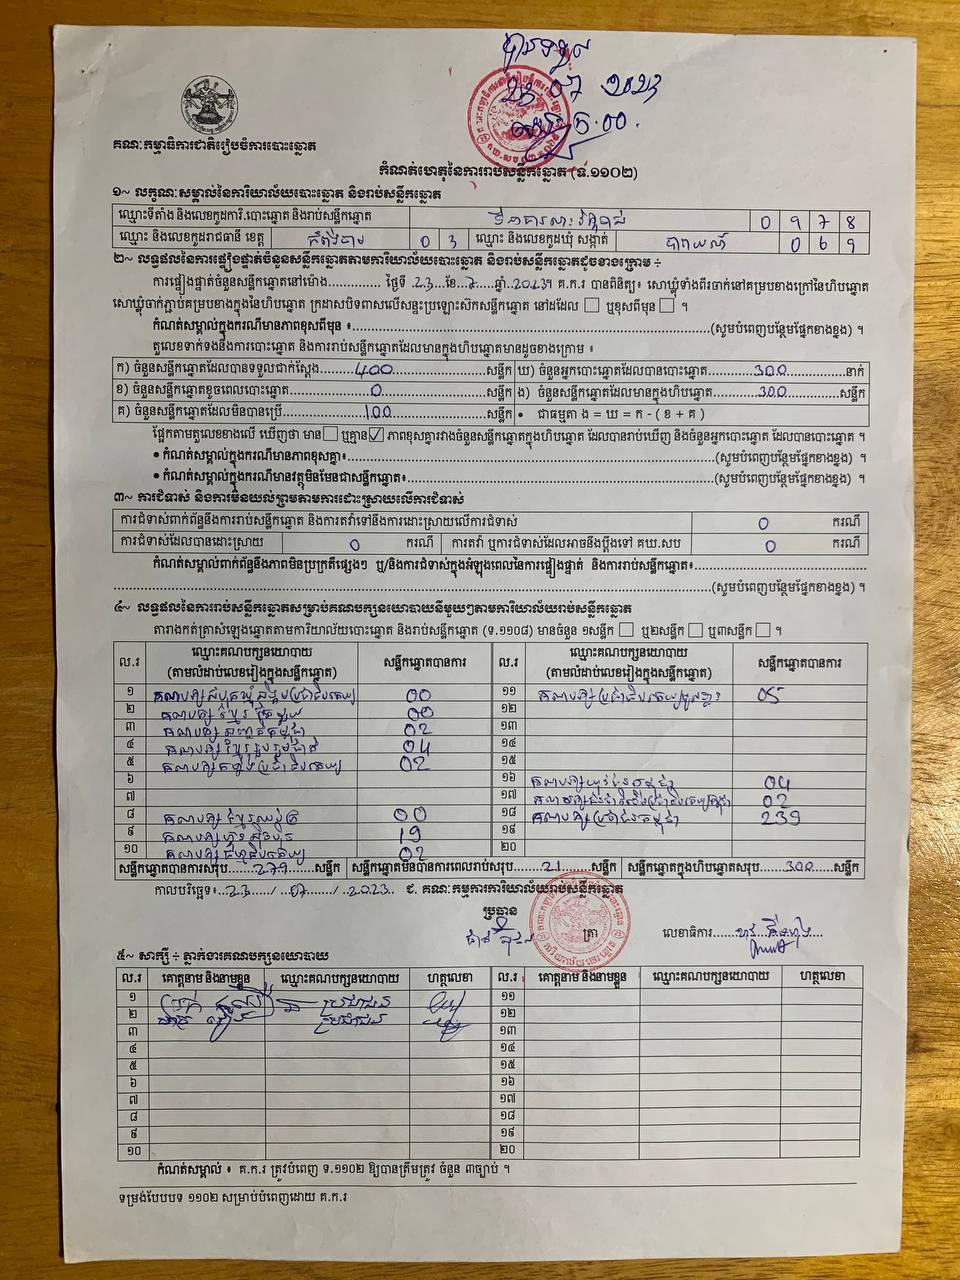 បានទទួល
23 07 2023
ម៉ោង 5:00
គណៈកម្មាធិការជាតិរៀបចំការបោះឆ្នោត
កំណត់ហេតុនៃការរាប់សន្លឹកឆ្នោត (ទ.១១០២)
១~ លក្ខណៈសម្គាល់នៃការិយាល័យបោះឆ្នោត និងរាប់សន្លឹកឆ្នោត
ឈ្មោះទីតាំង និងលេខកូដការិ.បោះឆ្នោត និងរាប់សន្លឹកឆ្នោត 0 9 7 8
ឈ្មោះ និងលេខកូដរាជធានី ខេត្ត កំពង់ចាម 0 3 ឈ្មោះ និងលេខកូដឃុំ សង្កាត់ 0 6 1
២~ លទ្ធផលនៃការផ្ទៀងផ្ទាត់ចំនួនសន្លឹកឆ្នោតតាមការិយាល័យបោះឆ្នោត និងរាប់សន្លឹកឆ្នោតដូចខាងក្រោម ÷
ការផ្ទៀងផ្ទាត់ចំនួនសន្លឹកឆ្នោតនៅម៉ោង.............. ថ្ងៃទី 23 ខែ 7 ឆ្នាំ 2023។ គ.ក.រ បានពិនិត្យ៖ សោឃ្លុំទាំងពីរចាក់នៅគម្របខាងក្រៅនៃហិបឆ្នោត
សោឃ្លុំចាក់ភ្ជាប់គម្របខាងក្នុងនៃហិបឆ្នោត ក្រដាសបិទពាសលើសន្ទះប្រឡោះស៊កសន្លឹកឆ្នោត នៅដដែល ☐ ឬខុសពីមុន ☐ ។
កំណត់សម្គាល់ក្នុងករណីមានភាពខុសពីមុន ៖........(សូមបំពេញបន្ថែមផ្នែកខាងខ្នង) ។
តួលេខទាក់ទងនឹងការបោះឆ្នោត និងការរាប់សន្លឹកឆ្នោតដែលមានក្នុងហិបឆ្នោតមានដូចខាងក្រោម ៖
ក) ចំនួនសន្លឹកឆ្នោតដែលបានទទួលជាក់ស្តែង 400 សន្លឹក ឃ) ចំនួនអ្នកបោះឆ្នោតដែលបានបោះឆ្នោត 300 នាក់
ខ) ចំនួនសន្លឹកឆ្នោតខូចពេលបោះឆ្នោត 0 សន្លឹក ង) ចំនួនសន្លឹកឆ្នោតដែលមានក្នុងហិបឆ្នោត 300 សន្លឹក
គ) ចំនួនសន្លឹកឆ្នោតដែលមិនបានប្រើ 100 សន្លឹក • ជាធម្មតា ង = ឃ = ក - ( ខ + គ )
ផ្អែកតាមតួលេខខាងលើ ឃើញថា មាន ☐ ឬគ្មាន ☑ ភាពខុសគ្នារវាងចំនួនសន្លឹកឆ្នោតក្នុងហិបឆ្នោត ដែលបានរាប់ឃើញ និងចំនួនអ្នកបោះឆ្នោត ដែលបានបោះឆ្នោត ។
• កំណត់សម្គាល់ក្នុងករណីមានភាពខុសគ្នា៖........(សូមបំពេញបន្ថែមផ្នែកខាងខ្នង) ។
• កំណត់សម្គាល់ក្នុងករណីមានវត្ថុមិនមែនជាសន្លឹកឆ្នោត៖........(សូមបំពេញបន្ថែមផ្នែកខាងខ្នង) ។
៣~ ការជំទាស់ និងការមិនយល់ព្រមតាមការដោះស្រាយលើការជំទាស់
ការជំទាស់ពាក់ព័ន្ធនឹងការរាប់សន្លឹកឆ្នោត និងការតវ៉ាទៅនឹងការដោះស្រាយលើការជំទាស់ 0 ករណី
ការជំទាស់ដែលបានដោះស្រាយ 0 ករណី ការតវ៉ា ឬការជំទាស់ដែលអាចនឹងប្តឹងទៅ គឃ.សប 0 ករណី
កំណត់សម្គាល់ពាក់ព័ន្ធនឹងភាពមិនប្រក្រតីផ្សេងៗ ឬ/និងការជំទាស់ក្នុងអំឡុងពេលនៃការផ្ទៀងផ្ទាត់ និងការរាប់សន្លឹកឆ្នោត៖........
........(សូមបំពេញបន្ថែមផ្នែកខាងខ្នង) ។
៤~ លទ្ធផលនៃការរាប់សន្លឹកឆ្នោតសម្រាប់គណបក្សនយោបាយនីមួយៗតាមការិយាល័យរាប់សន្លឹកឆ្នោត
តារាងកត់ត្រាសំឡេងឆ្នោតតាមការិយាល័យបោះឆ្នោត និងរាប់សន្លឹកឆ្នោត (ទ.១១០៨) មានចំនួន ១សន្លឹក ☐ ឬ២សន្លឹក ☐ ឬ៣សន្លឹក ☐ ។
ល.រ ឈ្មោះគណបក្សនយោបាយ (តាមលំដាប់លេខរៀងក្នុងសន្លឹកឆ្នោត) សន្លឹកឆ្នោតបានការ ល.រ ឈ្មោះគណបក្សនយោបាយ (តាមលំដាប់លេខរៀងក្នុងសន្លឹកឆ្នោត) សន្លឹកឆ្នោតបានការ
១ គណបក្សសំបុកឃ្មុំសង្គមប្រជាធិបតេយ្យ 00 ១១ គណបក្សប្រជាធិបតេយ្យមូលដ្ឋាន 05
២ គណបក្សខ្មែរ 00 ១២
៣ គណបក្ស 02 ១៣
៤ គណបក្សខ្មែររួបរួមជាតិ 04 ១៤
៥ គណបក្សកម្លាំងប្រជាធិបតេយ្យ 02 ១៥
៦ ១៦ គណបក្សយុវជនកម្ពុជា 04
៧ ១៧ គណបក្ស 02
៨ គណបក្សខ្មែរឈប់ក្រ 00 ១៨ គណបក្សប្រជាជនកម្ពុជា 239
៩ គណបក្សហ៊្វុនស៊ិនប៉ិច 19 ១៩
១០ គណបក្សធម្មាធិបតេយ្យ 02 ២០
សន្លឹកឆ្នោតបានការសរុប 279 សន្លឹក សន្លឹកឆ្នោតមិនបានការពេលរាប់សរុប 21 សន្លឹក សន្លឹកឆ្នោតក្នុងហិបឆ្នោតសរុប 300 សន្លឹក
កាលបរិច្ឆេទ៖ 23 / 07 / 2023 ជ. គណៈកម្មការការិយាល័យរាប់សន្លឹកឆ្នោត
ប្រធាន ត្រា លេខាធិការ
៥~ សាក្សី ÷ ភ្នាក់ងារគណបក្សនយោបាយ
ល.រ គោត្តនាម និងនាមខ្លួន ឈ្មោះគណបក្សនយោបាយ ហត្ថលេខា ល.រ គោត្តនាម និងនាមខ្លួន ឈ្មោះគណបក្សនយោបាយ ហត្ថលេខា
១ ប្រជាជន ១១
២ ប្រជាជន ១២
៣ ១៣
៤ ១៤
៥ ១៥
៦ ១៦
៧ ១៧
៨ ១៨
៩ ១៩
១០ ២០
កំណត់សម្គាល់ ៖ គ.ក.រ ត្រូវបំពេញ ទ.១១០២ ឱ្យបានត្រឹមត្រូវ ចំនួន ៣ច្បាប់ ។
ទម្រង់បែបបទ ១១០២ សម្រាប់បំពេញដោយ គ.ក.រ